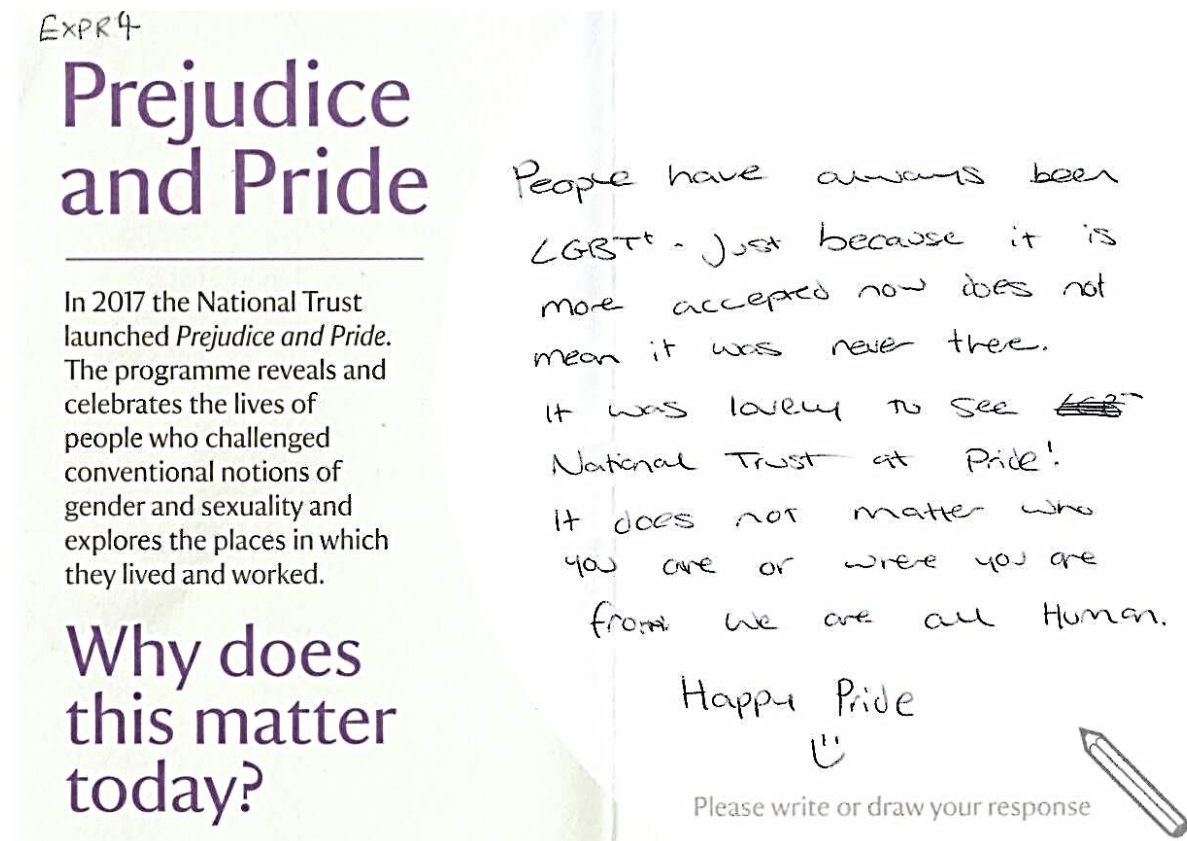 EXPR4
Prejudice
and Pride
In 2017 the National Trust
launched Prejudice and Pride.
The programme reveals and
celebrates the lives of
people who challenged
conventional notions of
gender and sexuality and
explores the places in which
they lived and worked.
Why does
this matter
today?
People have always been
LGBT+ - Just because it is
more accepted now does not
mean it was never there.
It was lovely to see LGBT
National Trust at Pride!
It does not matter who
you are or where you are
from we are all Human.
Happy Pride
Please write or draw your response